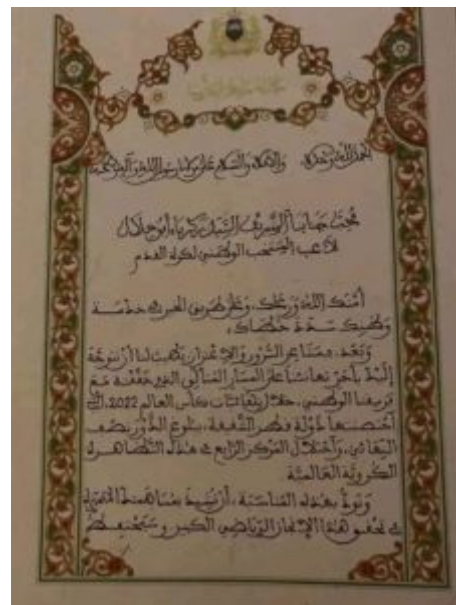 الحمد لله وحده، والصلاة والسلام على مولانا رسول الله وآله وصحبه
محب جنابنا الشريف السيد زكرياء أبو خلال
لاعب المنتخب الوطني لكرة القدم
أمنك الله ورعاك، وعلى طريق الخير في خدمة
وطنك سدد خطاك،
وبعد، فبمشاعر السرور والاعتزاز يطيب لنا أن نتوجه
إليك بأحر تهانئنا على المسار المثالي الذي حققته مع
فريقنا الوطني، خلال نهائيات كأس العالم 2022، التي
احتضنتها دولة قطر الشقيقة، ببلوغ الدور نصف
النهائي، واحتلال المركز الرابع في هذه التظاهرة
الكروية العالمية.
ونود بهذه المناسبة، أن نشيد بمساهمتك المتميزة
في تحقيق هذا الإنجاز الرياضي الكبير